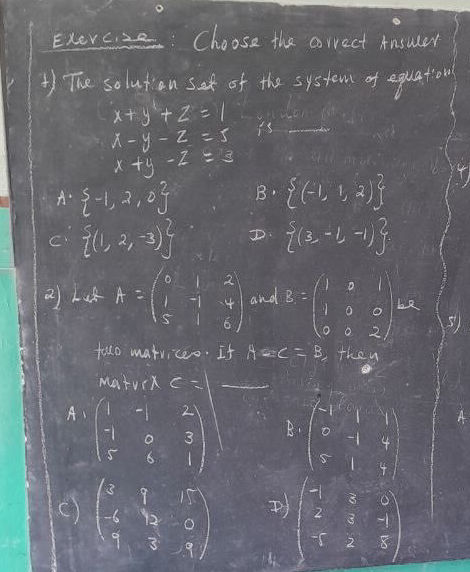 Exercise : Choose the correct Answer
1) The solution set of the system of equation
x + y + z = 1
x - y - z = 5 is ____
x + y - z = 3
A. {-1, 2, 0} B. {(-1, 1, 2)}
C. {(1, 2, -3)} D. {(3, -1, -1)}
2) Let A = (0 1 2 and B = (1 0 1 be
1 -1 4 1 0 0
5 1 6) 0 0 2)
two matrices. If A - C = B, then
matrix C = ____
A. (1 -1 2 B. (-1 1 1
-1 0 3 0 -1 4
5 6 1) 5 1 4)
C) (3 9 15 D) (-1 3 0
-6 12 0 2 3 -1
9 3 9) -5 2 8)
4)
5)
A